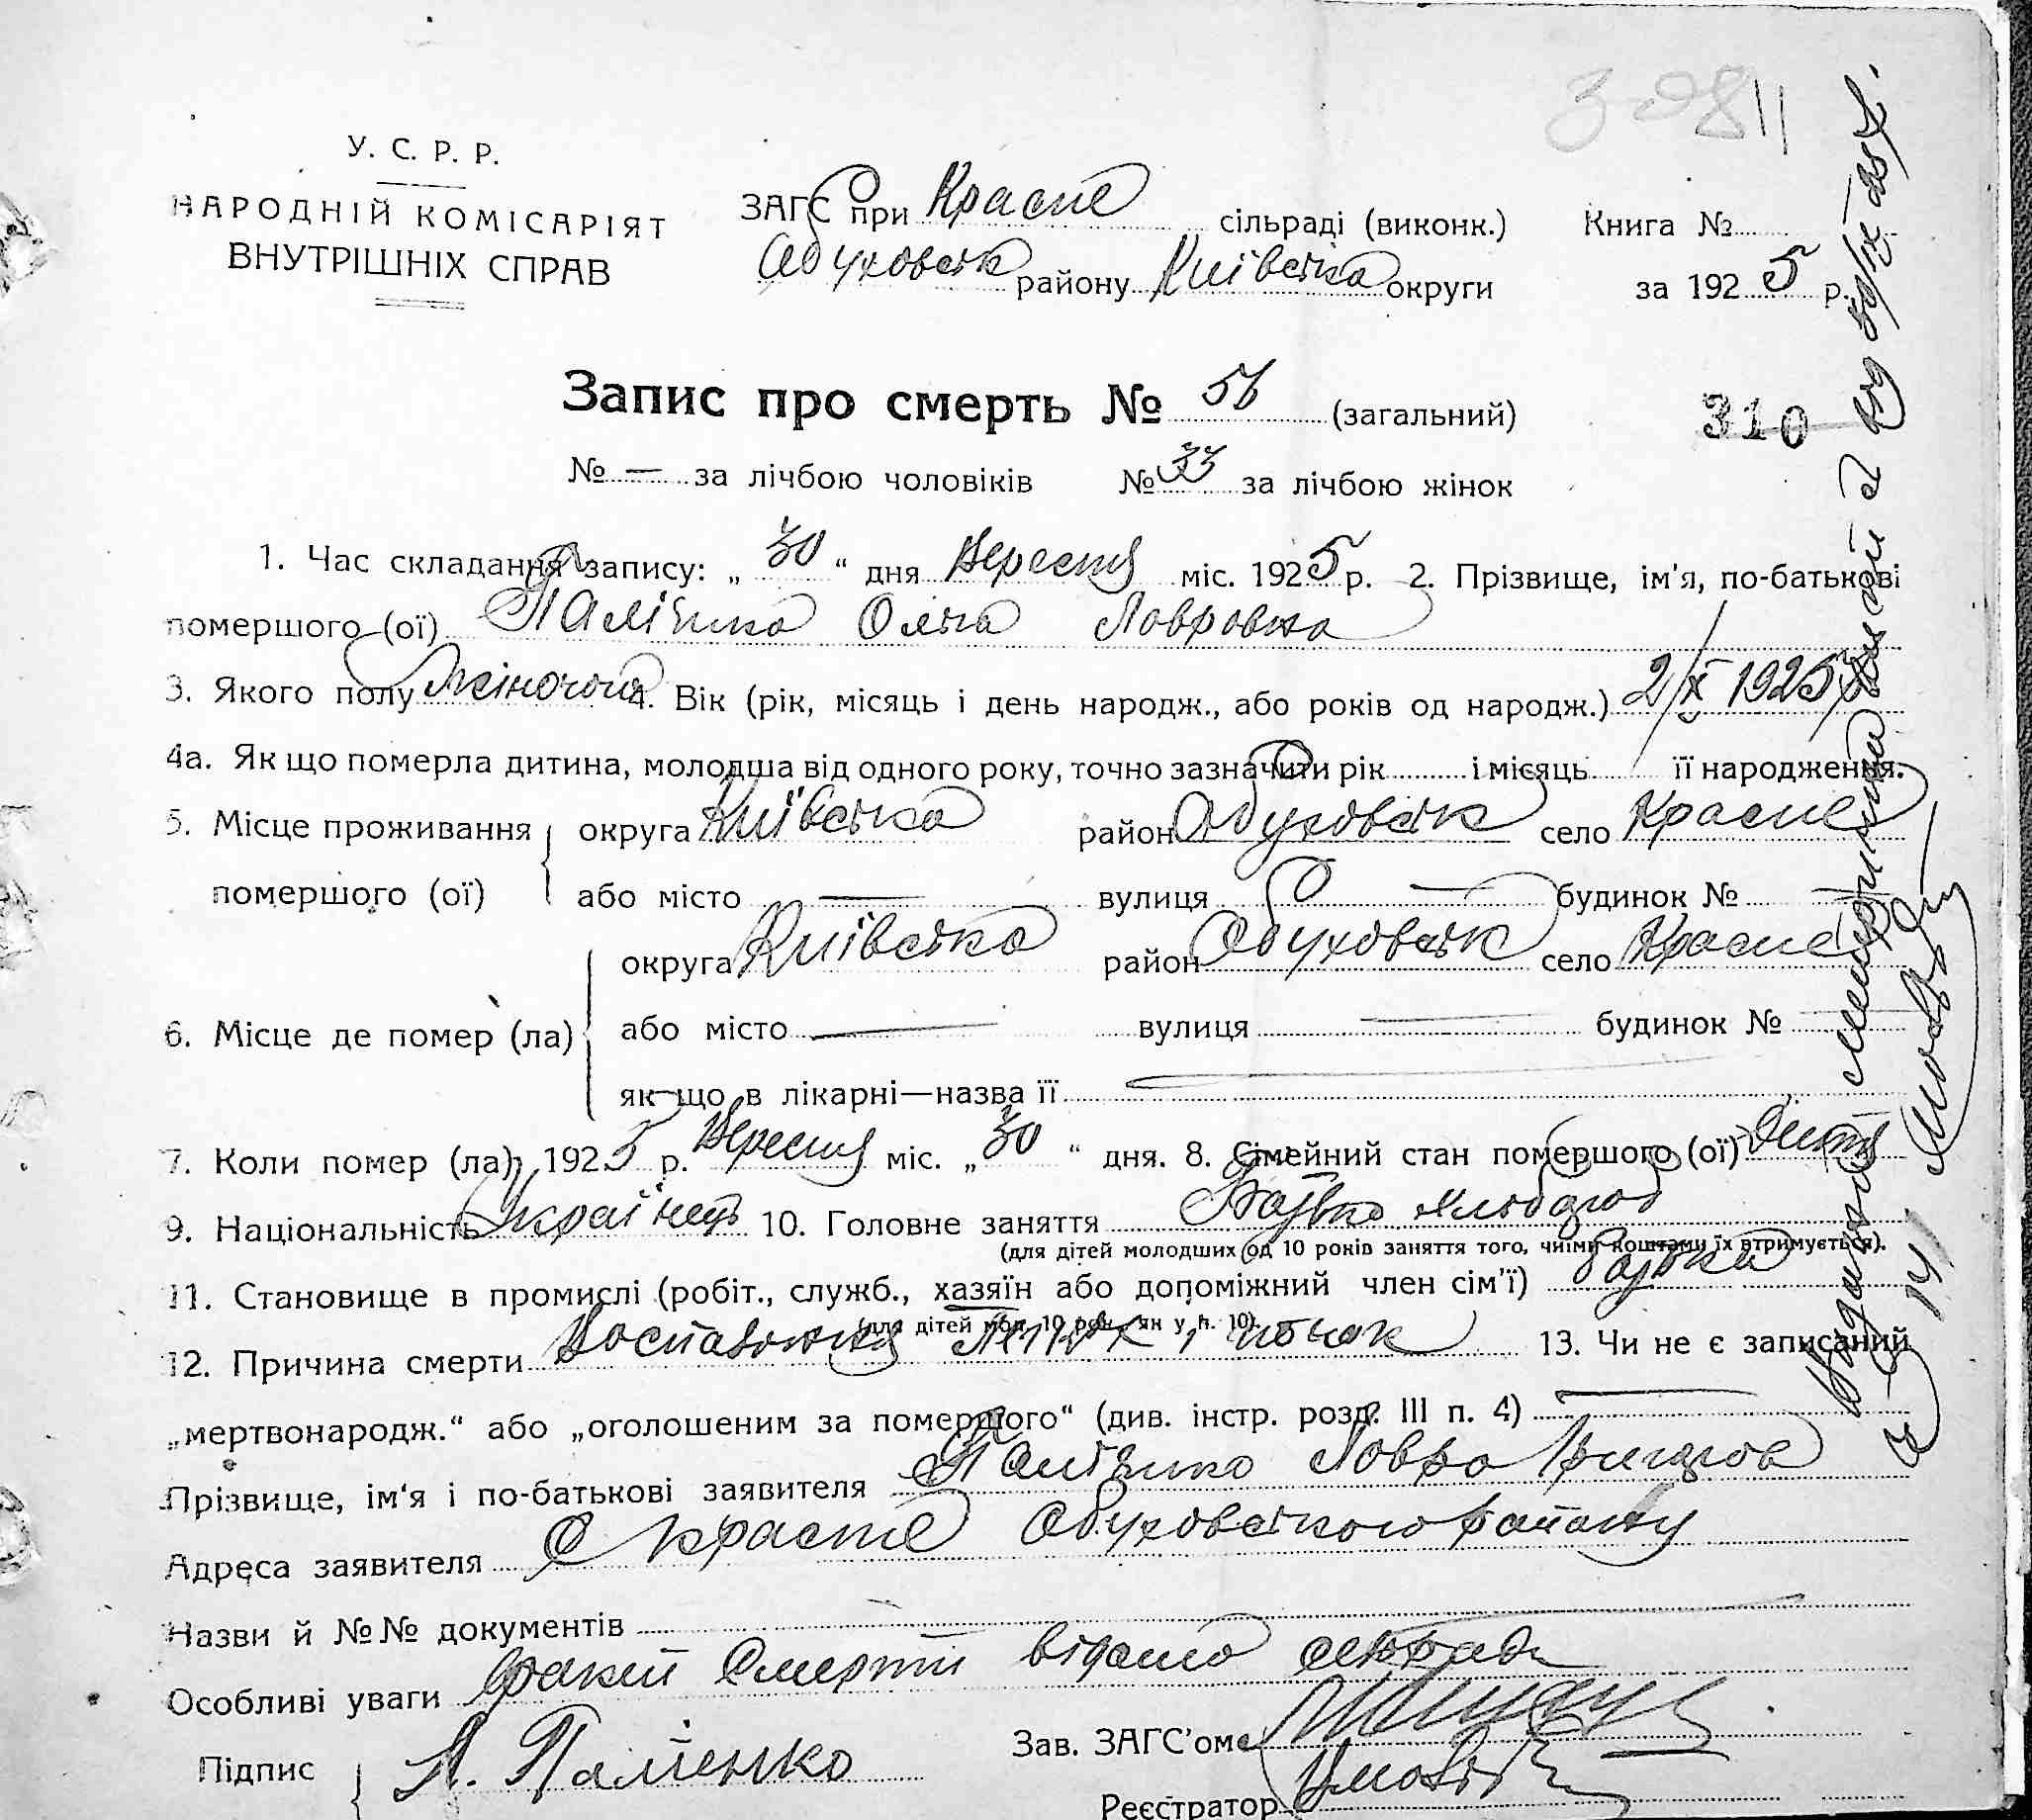 У. С. Р. Р.
НАРОДНІЙ КОМІСАРІЯТ
ВНУТРІШНІХ СПРАВ
ЗАГС при Красне сільраді (виконк.) Книга №
Обуховськ району Київська округи за 1925 р.
Запис про смерть № 56 (загальний)
310
№ — за лічбою чоловіків № 33 за лічбою жінок
1. Час складання запису: „30“ дня Вересня міс. 1925 р. 2. Прізвище, ім'я, по-батькові
помершого (ої) Паліенко Ольга Лавровна
3. Якого полу Жіночого 4. Вік (рік, місяць і день народж., або років од народж.) 2/X 1925
4а. Як що померла дитина, молодша від одного року, точно зазначити рік і місяць її народження.
5. Місце проживання округа Київська район Обуховськ село Красне
помершого (ої) або місто — вулиця — будинок № —
округа Київська район Обуховськ село Красне
6. Місце де помер (ла) або місто — вулиця — будинок № —
як що в лікарні—назва її —
7. Коли помер (ла) 1925 р. Вересня міс. „30“ дня. 8. Сімейний стан помершого (ої) Дитя
9. Національність Українець 10. Головне заняття Батько хлібороб
(для дітей молодших од 10 років заняття того, чиїми коштами їх втримується).
11. Становище в промислі (робіт., служб., хазяїн або допоміжний член сім'ї)
(для дітей мол. 10 рок. як у п. 10).
12. Причина смерти 13. Чи не є записаний
„мертвонародж.“ або „оголошеним за помершого“ (див. інстр. розд. III п. 4) —
Прізвище, ім‘я і по-батькові заявителя Паліенко Лавро Григоров
Адреса заявителя С Красне Обуховського району
Назви й №№ документів —
Особливі уваги факт смерти відомо сільраді
Підпис Л. Паліенко Зав. ЗАГС'ом
Реєстратор